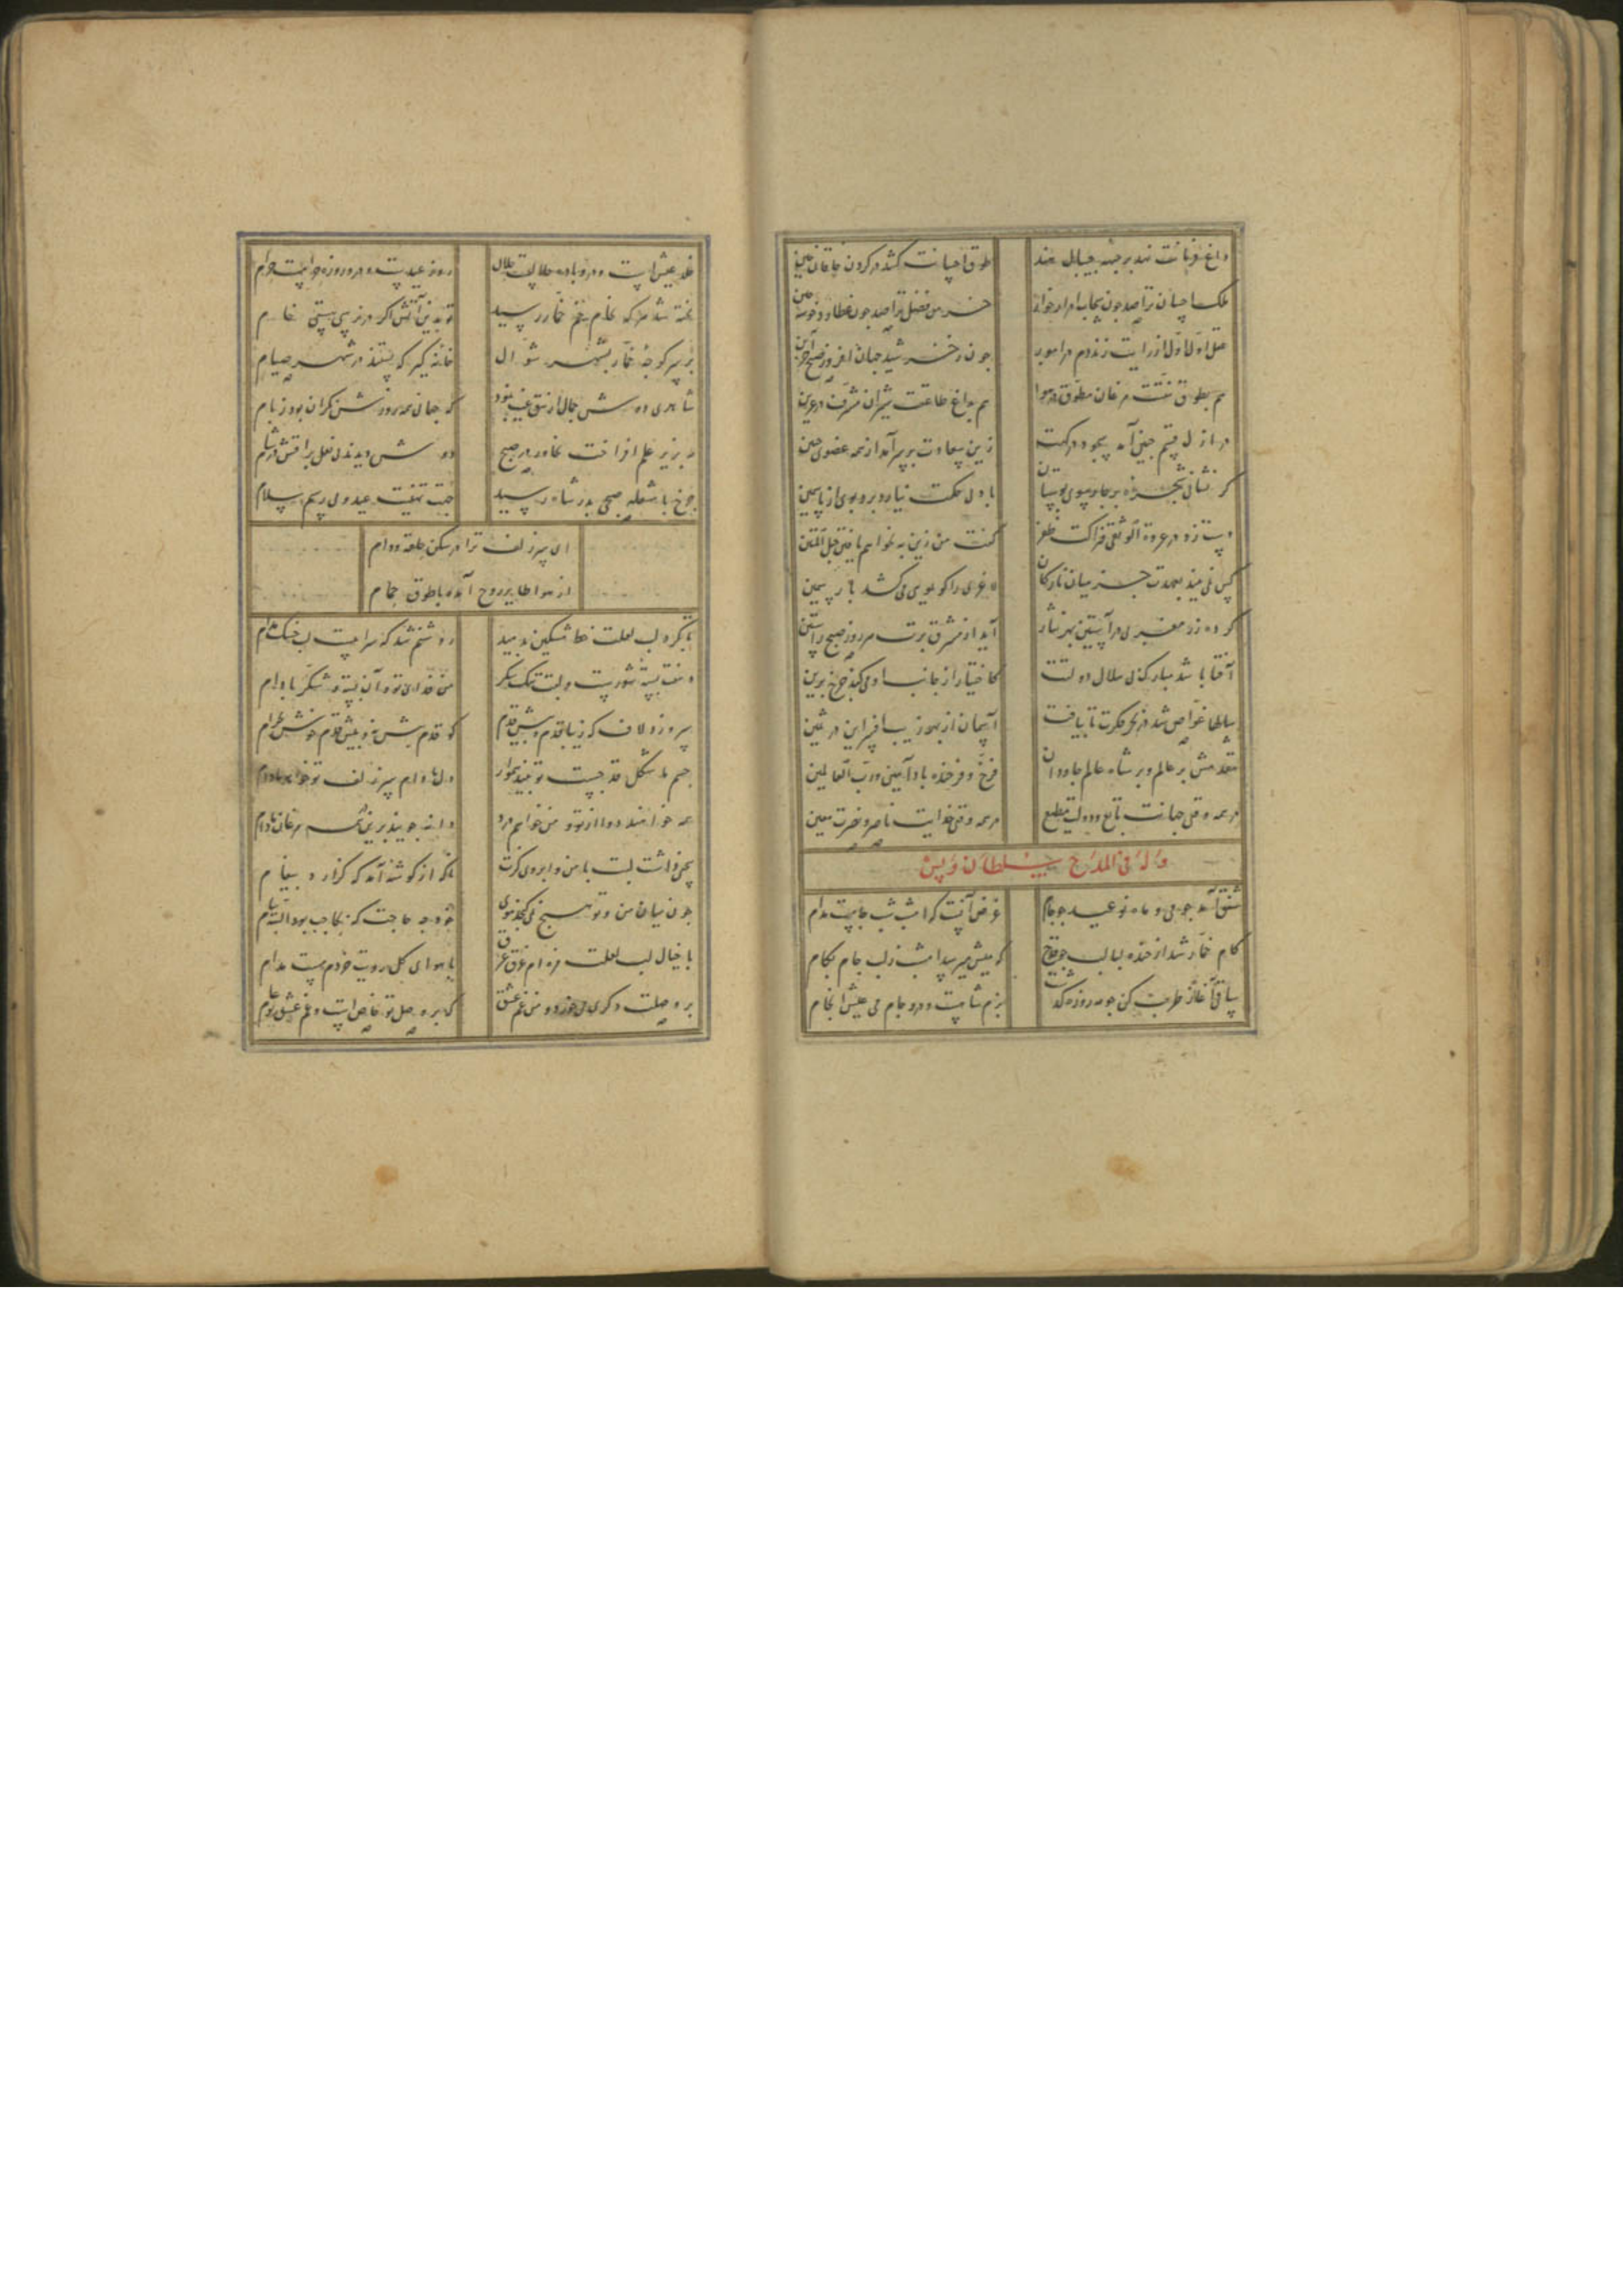 داغ فرمانت نهد بر جبهه جیپال هند
طوق احسانت کشد در گردن خاقان چین
ملک احسان ترا صد چون سحاب ادرارخوار
خرمن فضل ترا صد چون عطارد خوشه چین
عقل اول اول از رایت زند دم در امور
چون ز خورشید جهان افروز صبح آخرین
هم بطوق منتت مرغان مطوق در هوا
هم بداغ طاعتت شیران مشرف در عرین
در ازل قسم جبین آمد سجود درگهت
زین سعادت بر سر آمد از همه عضوی جبین
گر نشانی شجره بر جا بر سوی بوستان
باد بی حکمت نیارد برد بوی از یاسمین
دست زد در عروة الوثقی فتراکت ظفر
گفت من زین به نخواهم یافتن حبل المتین
کس نمی‌بیند بعهدت جز میان تارکان
لاغری را کو بمویی می کشد بار سمین
کرده زر مغربی در آستین بهر نثار
آید از مشرق برت هر روز صبح راستین
آفتابا شد مبارک بی ملال دولتت
کاختیار از جانب او می کند چرخ برین
سلطا غواص شد در بحر فکرت تا بیافت
آسمان از بهر زیب افسر این در ثمین
مقدمش بر عالم و بر شاه عالم جاودان
فرخ و فرخنده باد آمین و رب العالمین
در همه وقتی جهانت تابع و دولت مطیع
در همه وقتی خدایت ناصر و نصرت معین
وله فی المدح سلطان اویس
شفق آمد چو می و ماه نو عید چو جام
غرض آنست که امشب شب جامست مدام
کام خمار شد از خنده لبالب چو قدح
که میش میرسد امشب ز لب جام بکام
ساقی آغاز طرب کن چو مه روزه گذشت
بزم شامست و در و جام می عیش انجام
خلد عیش است و در و باده حلالست حلال
روز عیدست و درو روزه حرامست حرام
پخته شد هر که بخام خم خمار رسید
تو بدین آتش اگر در نرسی هستی خام
بر سر کوچه خمار بشهر شوال
خانه گیر که بستند در شهر صیام
شاهدی دوش جمال از تتق غیب نمود
که جهانی همه روزش نگران بود ز بام
دوش دیدند نعل براقش در شام
چرخ با شعله صبحی بدر شاه رسید
جهت تهنیت عید و می رسم سلام
ای سر زلف ترا در شکن حلقه دو دام
از هوا طایر روح آمده با طوق حمام
تا بگرد لب لعلت خط مشکین بدمید
روشنم شد که سراجست لب خشک تمام
دهنت پسته شورست و لبت تنگ شکر
من فدای تو و آن پسته و شکر بادام
سرو زد لاف که زیبا قدم و پیش قدم
گو قدم پیش نه و پیش قدم خوش بخرام
چشم ما شکل قد چست تو بیند هموار
دل ما دام سر زلف تو خواهد مادام
همه خواهند دوا از تو و من خواهم درد
دانه جویند برین گونه مرغان نه دام
سخنی داشت لبت با من و ابروی کژت
ناگه از گوشه آمد که گزارد پیغام
چون میان من و تو هیچ نمی‌گنجد موی
خود چه حاجت که بحاجب بود البته پیام
با خیال لب لعلت مژه ام غرق عرق
با هوای گل رویت خردم مست مدام
بر وصلت دگری می خورد و من غم عشق
که بر وصل تو خاص است و غم عشق تو عام